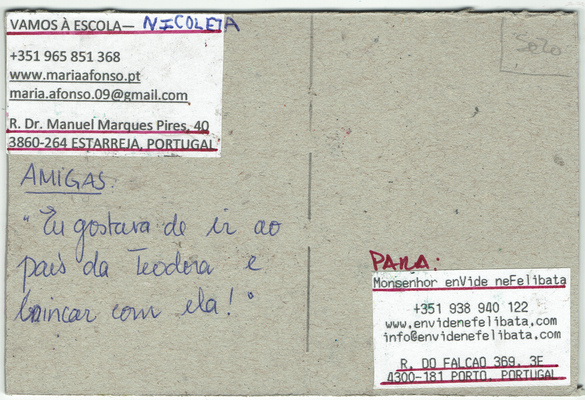 VAMOS À ESCOLA— NICOLETA
+351 965 851 368
www.mariaafonso.pt
maria.afonso.09@gmail.com
R. Dr. Manuel Marques Pires, 40
3860-264 ESTARREJA, PORTUGAL
Selo
AMIGAS:
"Eu gostava de ir ao
país da Teodora e
brincar com ela!"
PARA:
Monsenhor enVide neFelibata
+351 938 940 122
www.envidenefelibata.com
info@envidenefelibata.com
R. DO FALCAO 369, 3E
4300-181 PORTO, PORTUGAL